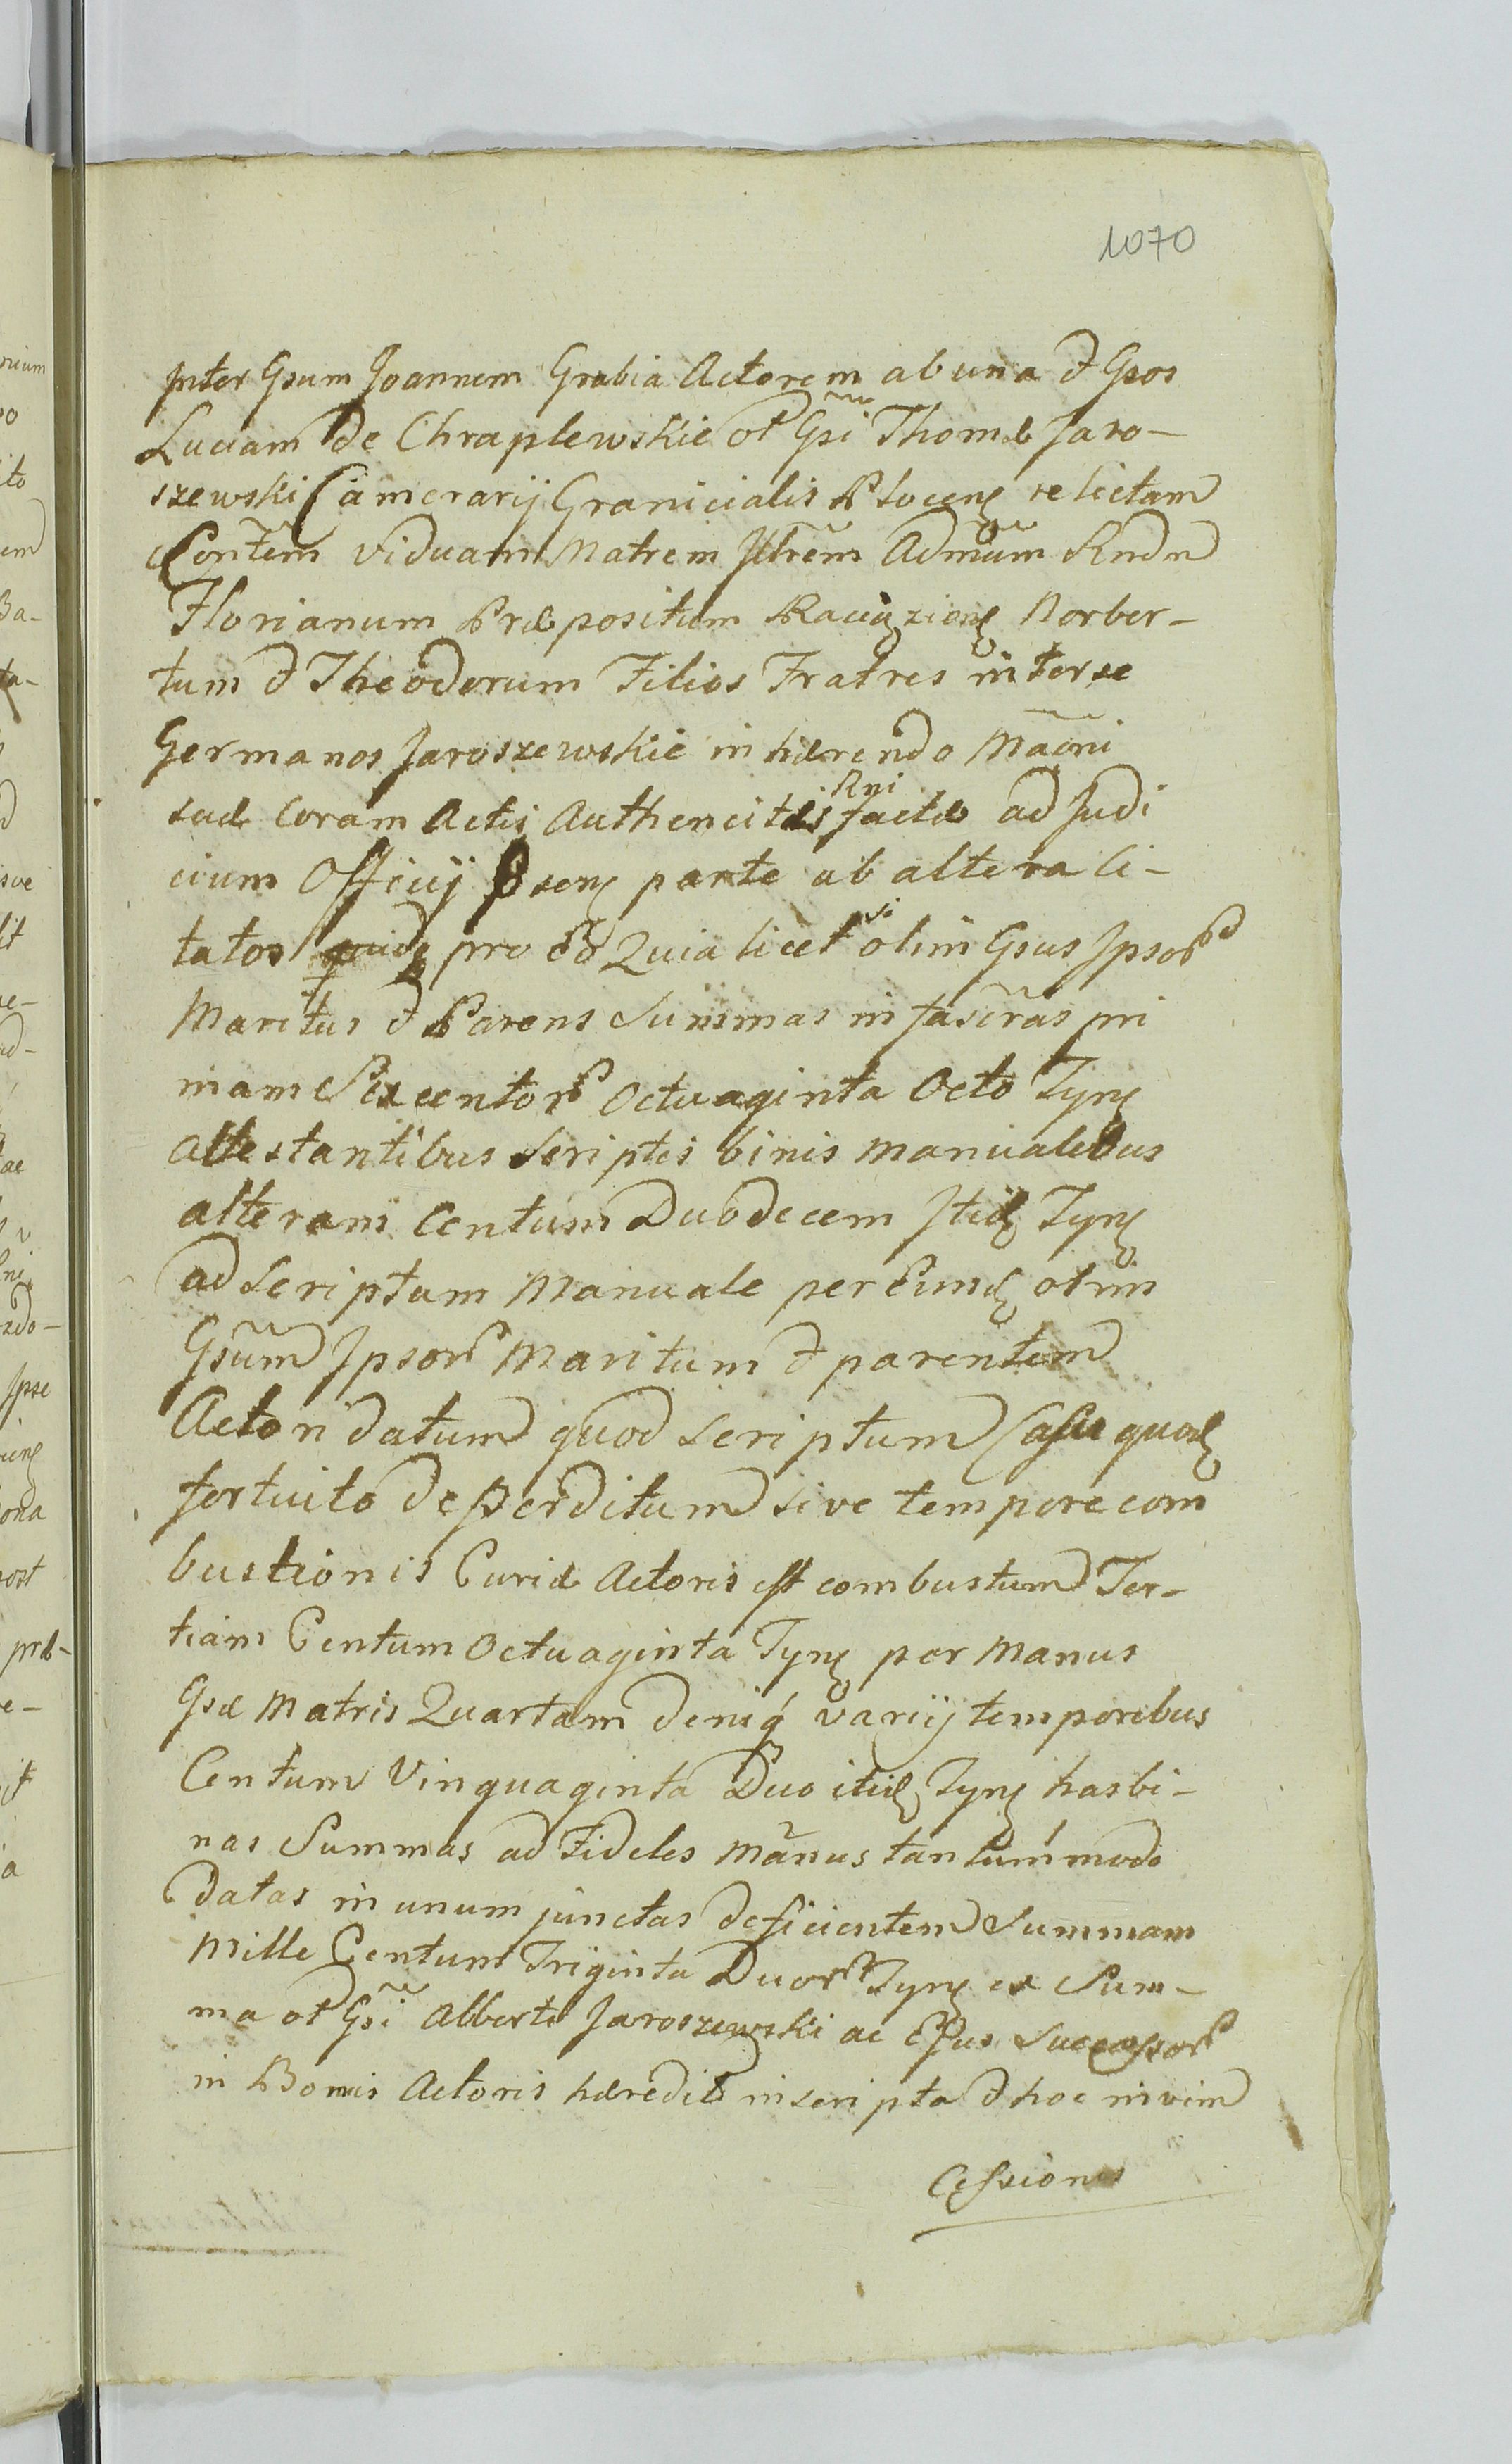 1070
Inter Gsum Joannem Grabia Actorem ab una & Gsos
Luciam de Chraplewskie ol Gsi Thomæ Jaro-
szewski Camerarij Granicialis Plocens relictam
Contem Viduam Matrem Illrem Admum Rndm
Florianum Præpositum Raciąziens Norber-
tum & Theodorum Filios Fratres inter se
Germanos Jaroszewskie inhærendo Maoni
suæ Coram Actis Authenticis Rni factæ ad Judi
cium Officij Psens parte ab altera Ci-
tatos quidq pro eo Quia licet olim Gsus Ipsor
Maritus & Parens Summas infascras pri
mam Sexcentor Octuaginta Octo Tynf
attestantibus Scriptis binis manualibus
alteram Centum Duodecem Itid Tynf
ad Scriptum Manuale per Eund olim
Gsum Ipsor Maritum & parentem
Actori datum quod Scriptum Casu quod
fortuito deperditum sive tempore com
bustionis Curiæ Actoris est combustum Ter-
tiam Centum Octuaginta Tynf per Manus
Gsæ Matris Quartam deniq varijs temporibus
Centum Vinquaginta Duo itid Tynf has bi-
nas Summas ad Fideles Manus tantummodo
datas in unum junctas deficientem Summam
Mille Centum Triginta Duor Tynf ex Sum-
ma ol Gsi Alberti Jaroszewski ac Ejus Successor
in Bonis Actoris hæredit inscripta & hoc in vim
Cessionis